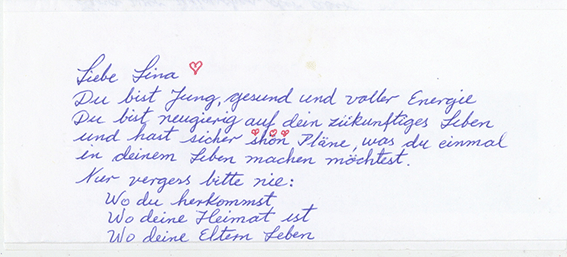 Liebe Lina
Du bist Jung, gesund und voller Energie
Du bist neugierig auf dein zükunftiges Leben
und hast sicher shön Pläne, was du einmal
in deinem Leben machen möchtest.
Nur vergess bitte nie:
Wo du herkommst,
Wo deine Heimat ist
Wo deine Eltern Leben